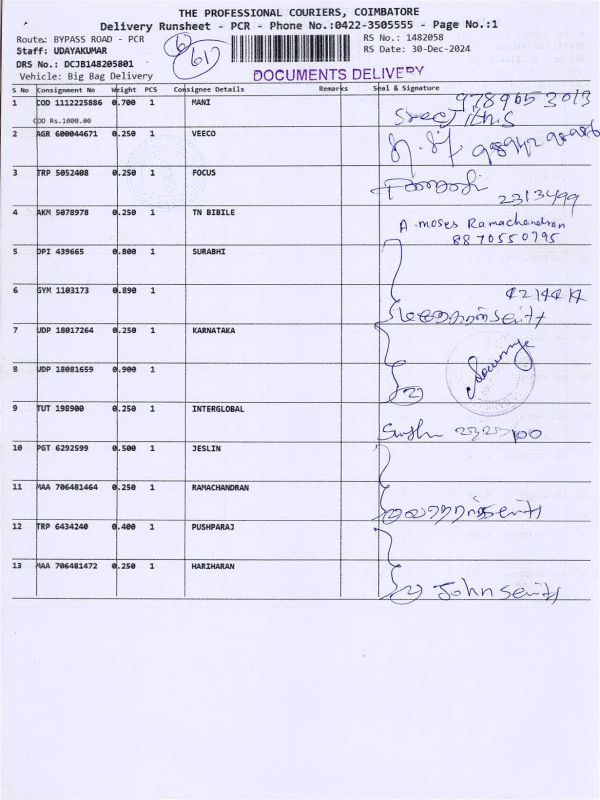 THE PROFESSIONAL COURIERS, COIMBATORE
Delivery Runsheet - PCR - Phone No.:0422-3505555 - Page No.:1
Route: BYPASS ROAD - PCR
RS No.: 1482058
Staff: UDAYAKUMAR
RS Date: 30-Dec-2024
DRS No.: DCJB148205801
Vehicle: Big Bag Delivery
DOCUMENTS DELIVERY
S No Consignment No Weight PCS Consignee Details Remarks Seal & Signature
1 COD 1112225886 0.700 1 MANI
COD Rs.1000.00
2 AGR 600044671 0.250 1 VEECO
3 TRP 5052408 0.250 1 FOCUS
2313499
4 AKM 5078978 0.250 1 TN BIBILE A. moses Ramachandran
8870550795
5 DPI 439665 0.800 1 SURABHI
6 GYM 1103173 0.890 1
7 UDP 18017264 0.250 1 KARNATAKA
8 UDP 18081659 0.900 1
2
9 TUT 198900 0.250 1 INTERGLOBAL
10 PGT 6292599 0.500 1 JESLIN
11 MAA 706481464 0.250 1 RAMACHANDRAN
12 TRP 6434240 0.400 1 PUSHPARAJ
13 MAA 706481472 0.250 1 HARIHARAN
2 John